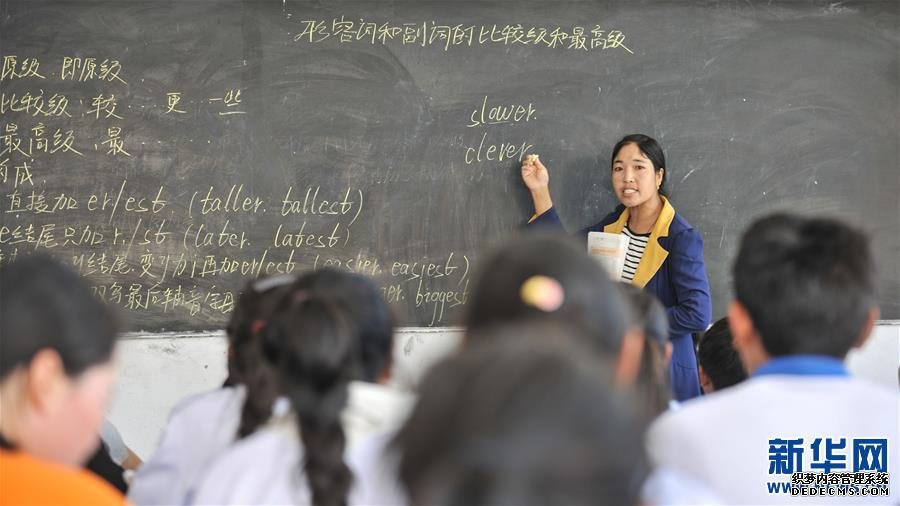 形容词和副词的比较级和最高级
原级 即原级
比较级:较…更…一些
最高级:最…
构成
直接加er/est (taller. tallest)
e结尾只加r/st (later. latest)
结尾.变 加er/est easiest)
双写最后 字母 biggest
slower.
clever.
新华网
织梦内容管理系统
DEDECMS.COM